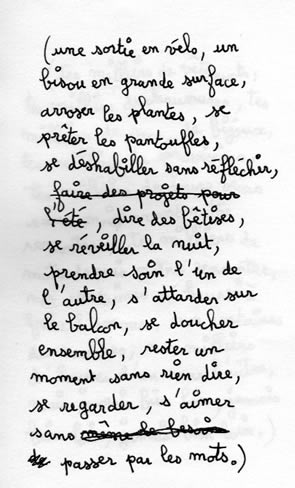 (une sortie en vélo, un
bisou en grande surface,
arroser les plantes, se
prêter les pantoufles,
se déshabiller sans réfléchir,
faire des projets pour
l'été, dire des bêtises,
se réveiller la nuit,
prendre soin l'un de
l'autre, s'attarder sur
le balcon, se doucher
ensemble, rester un
moment sans rien dire,
se regarder, s'aimer
sans même le besoin
de passer par les mots.)